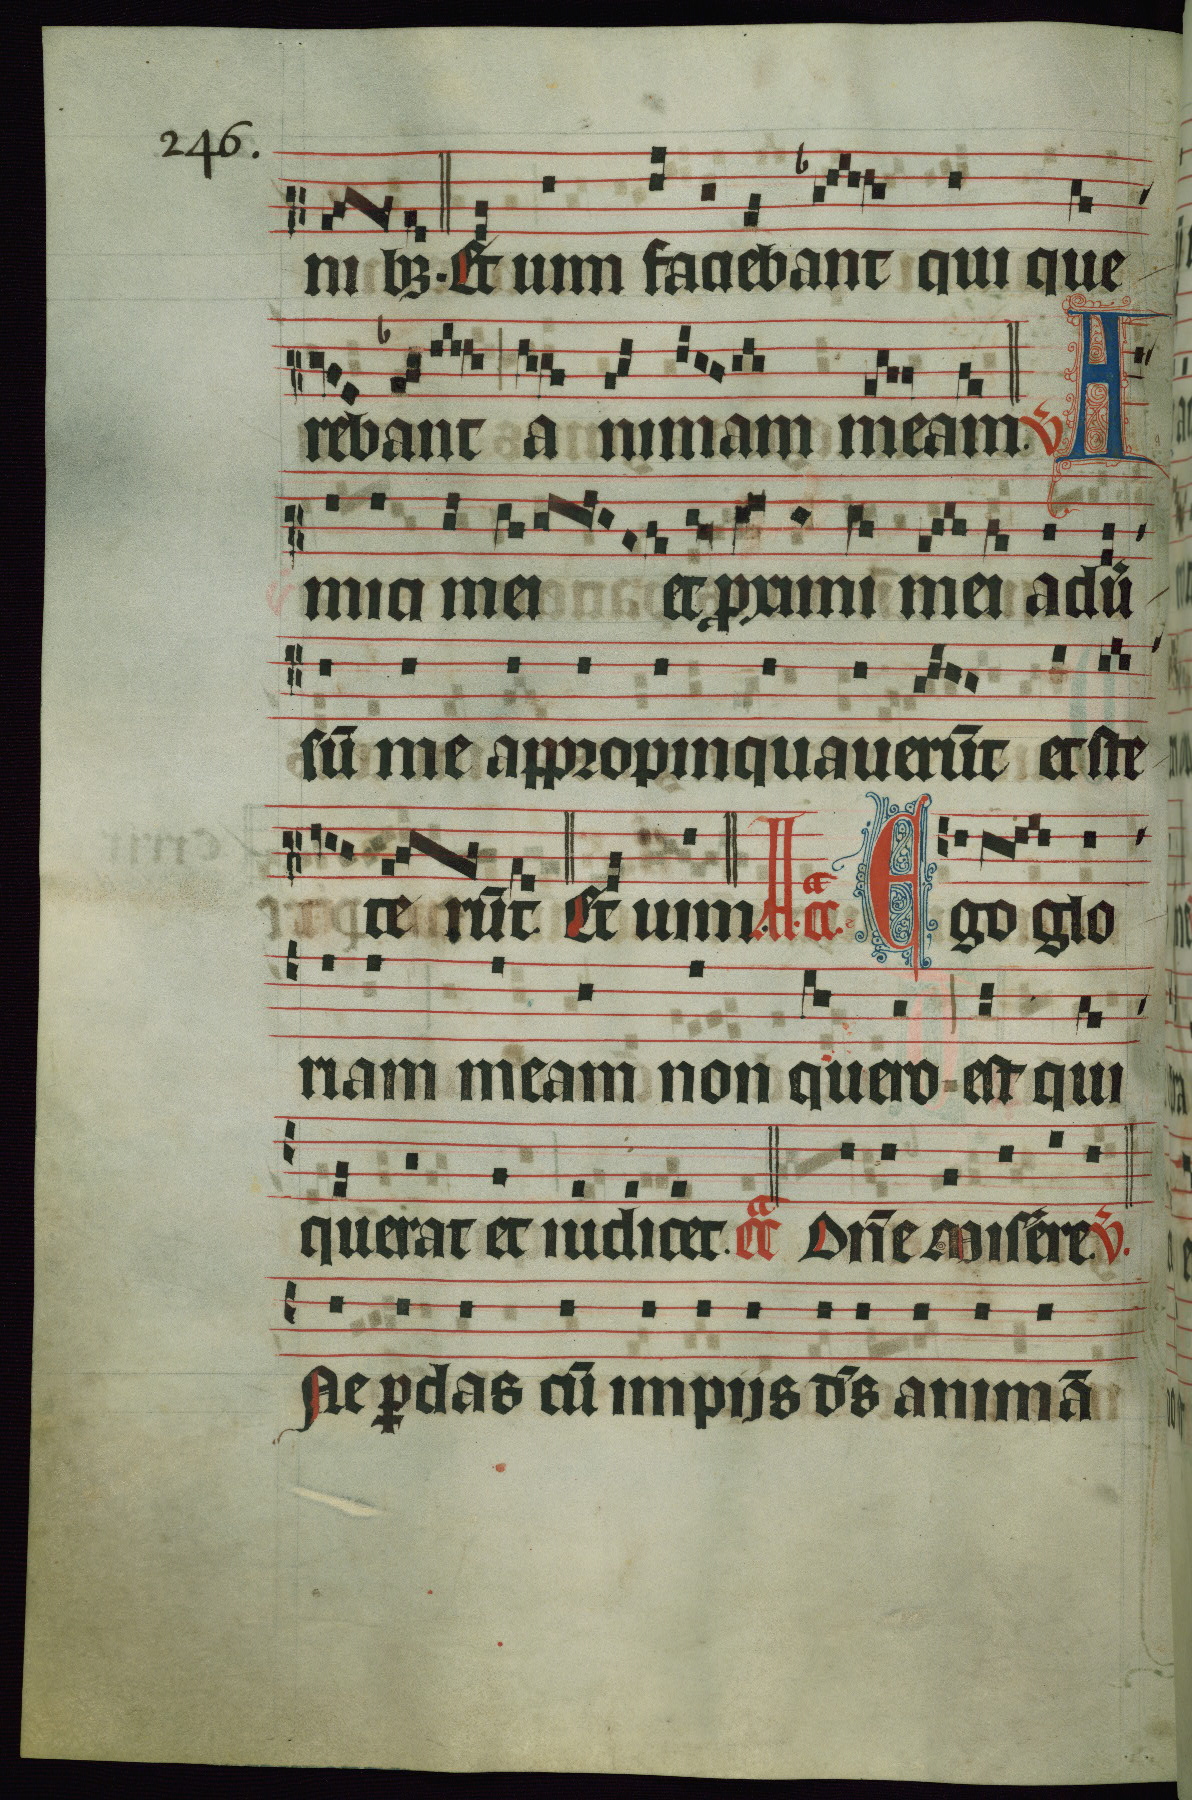 246.
ni bꝫ. Et uim faciebant qui que
rebant a nimam meam. ℣ A
mici mei et ꝓximi mei adū
sū me appropinquauerūt et ste
te rūt. Et uim. A. cā. Ego glo
riam meam non quero est qui
querat et iudicet. cā Dn̄e miserē. ℣.
Ne ꝑdas cū impijs d̄s animā